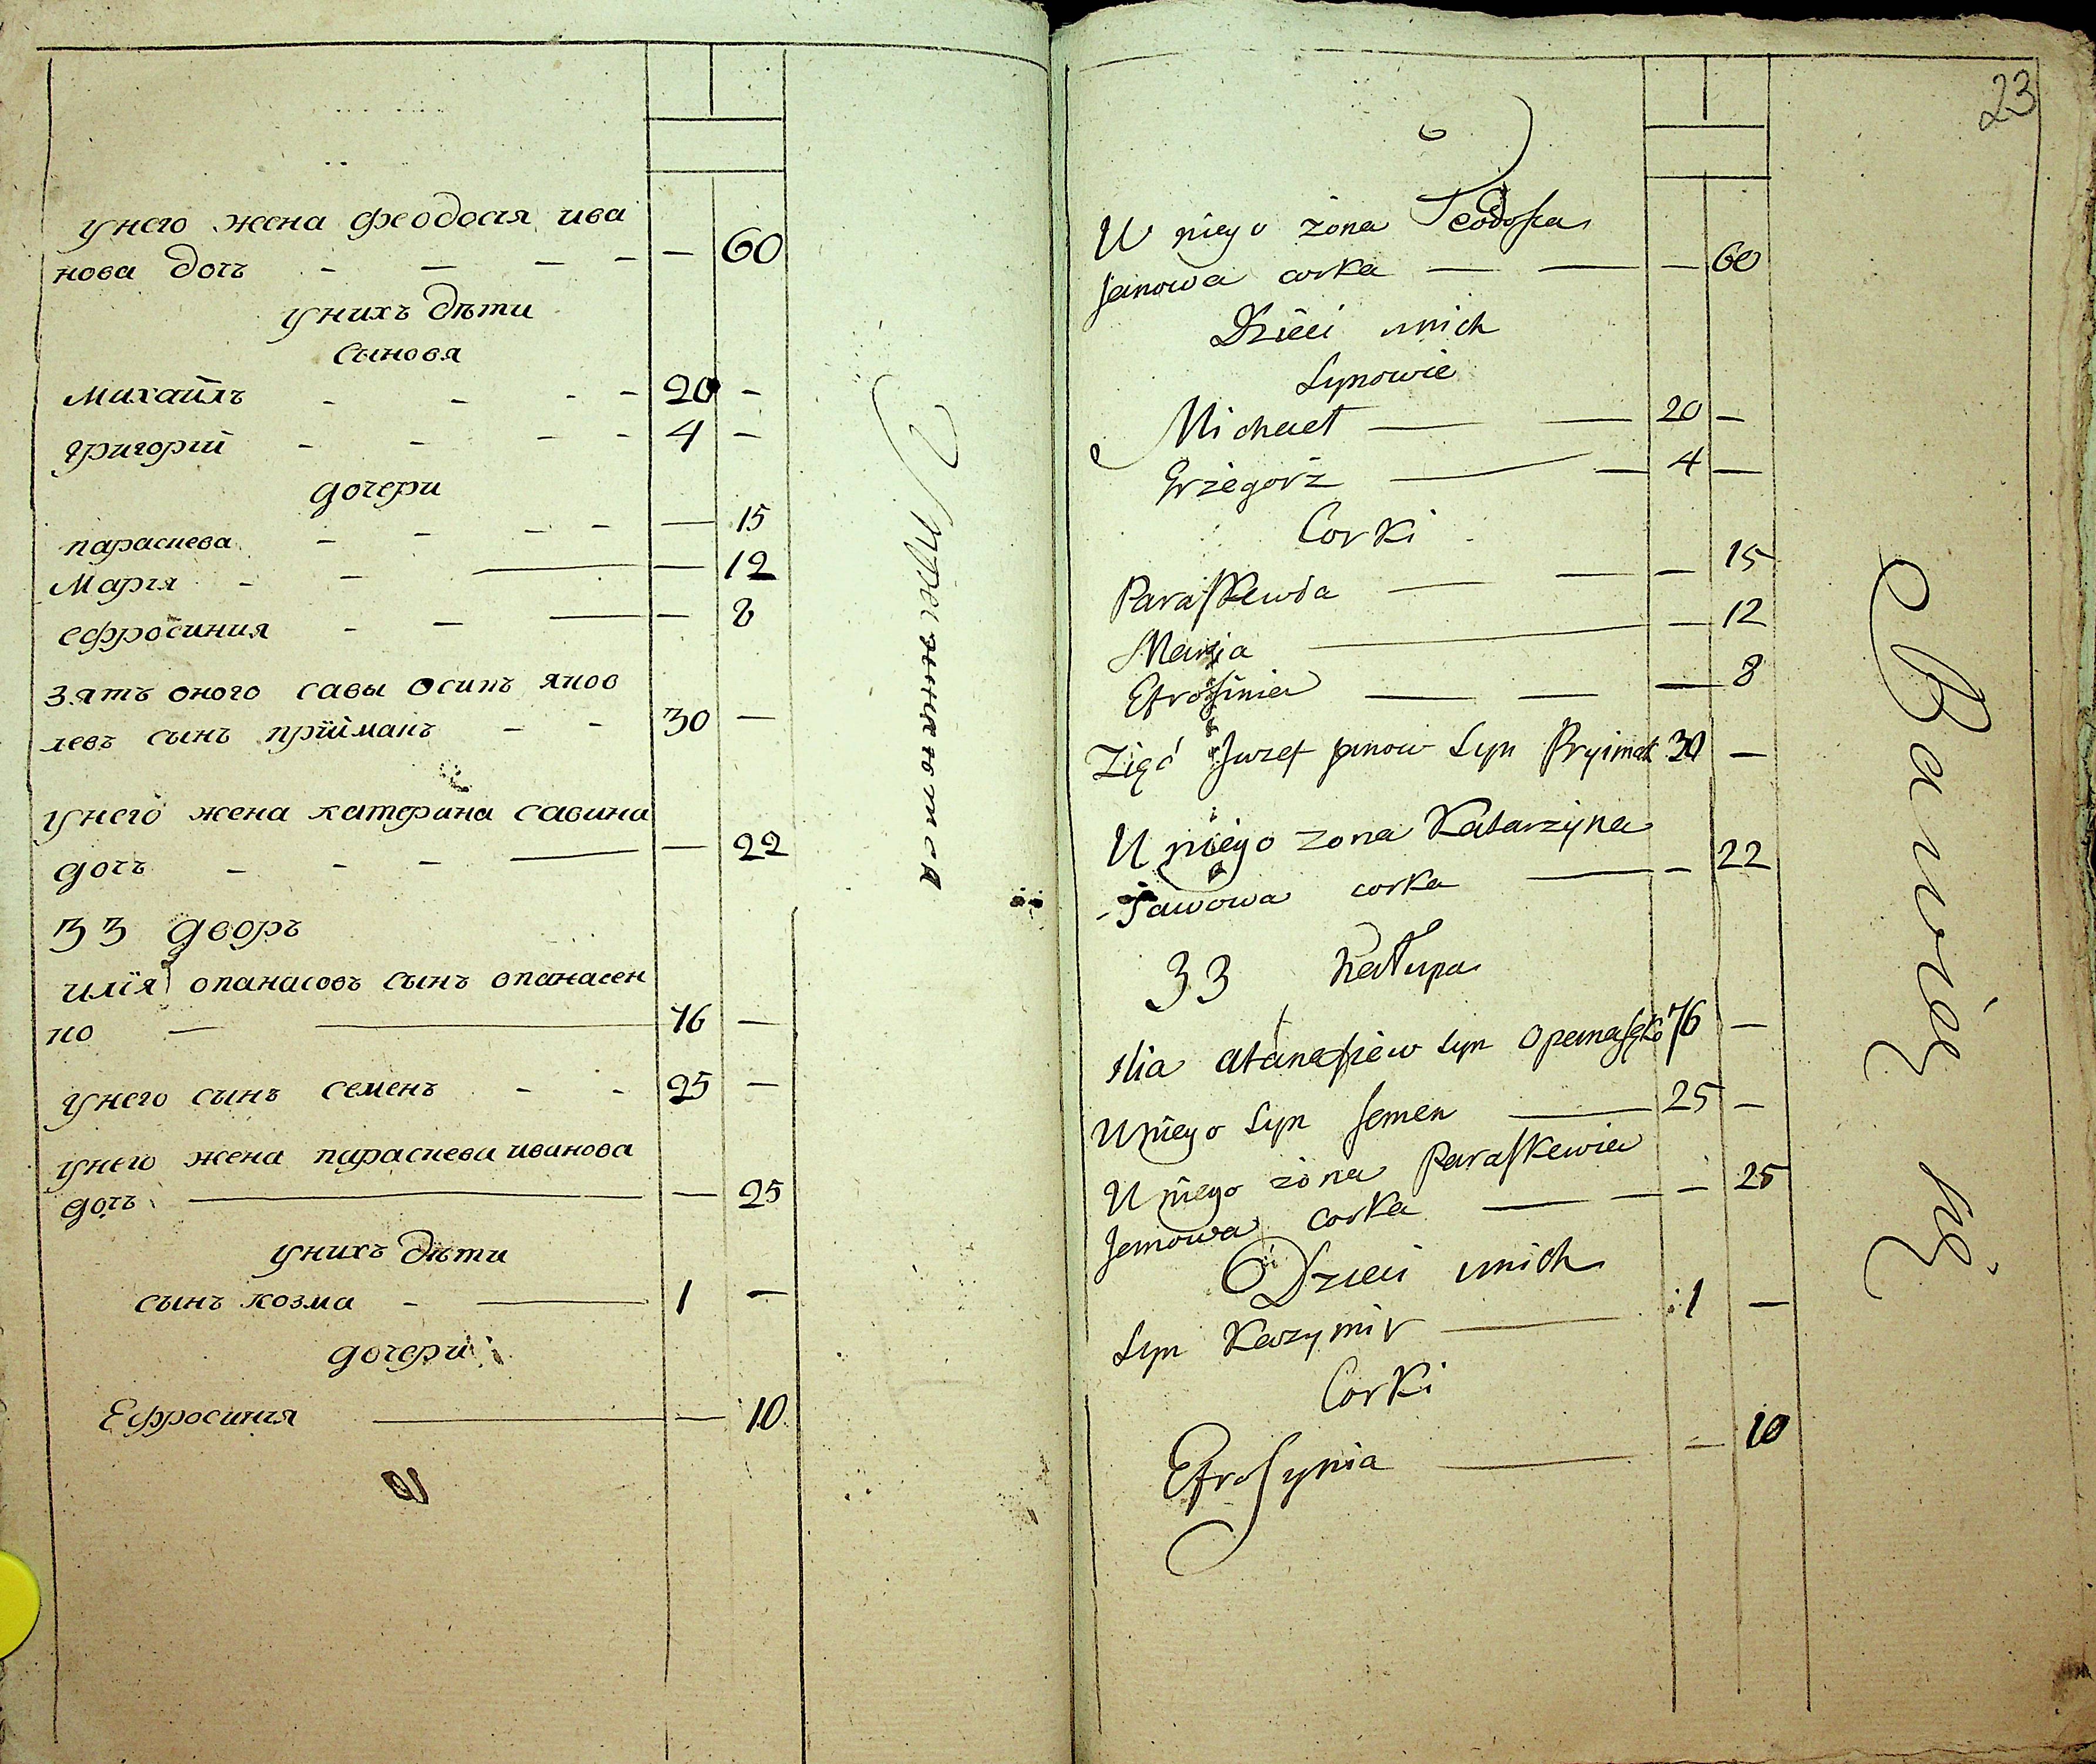 унего жена феодосія ива
нова дочъ - - - - — 60
унихъ дѣти
сыновя
михайлъ - - - - 20 -
григорій - - - - 4 -
дочери
парасиева - - - - — 15
Марія - - — — 12
ефросиния - - — — 8
зять оного савы осипъ яков
левъ сынъ прїйманъ - - 30 —
унего жена катерина савина
дочъ - - — — 22
33 дворъ
илїя опанасовъ сынъ опанасен
ко — — 76 —
унего сынъ семенъ - - 25 —
унего жена парасиева иванова
дочъ — — 25
унихъ дѣти
сынъ козма - — 1 —
дочери
Ефросинія — — 10
23
U niego żona Teodosia
Janowa corka — — — 60
Dzieci unich
Synowie
Michael — — 20 —
Grzegorz — — 4 —
Corki
Paraskewia — — — 15
Marija — — 12
Efrosinia — — — 8
Zięć Juzef janow Syn Pryimak 30 —
U niego zona Katarzyna
Sawowa corka — — 22
33 Kałupa
Ilia atanasiew syn Opanasęko 76 —
U niego Syn Semen — 25 —
U niego żona Paraskewia
Janowa corka — — — 25
Dzieci unich
Syn Kazymir — 1 —
Corki
Efrosynia — — 10
Bawią się